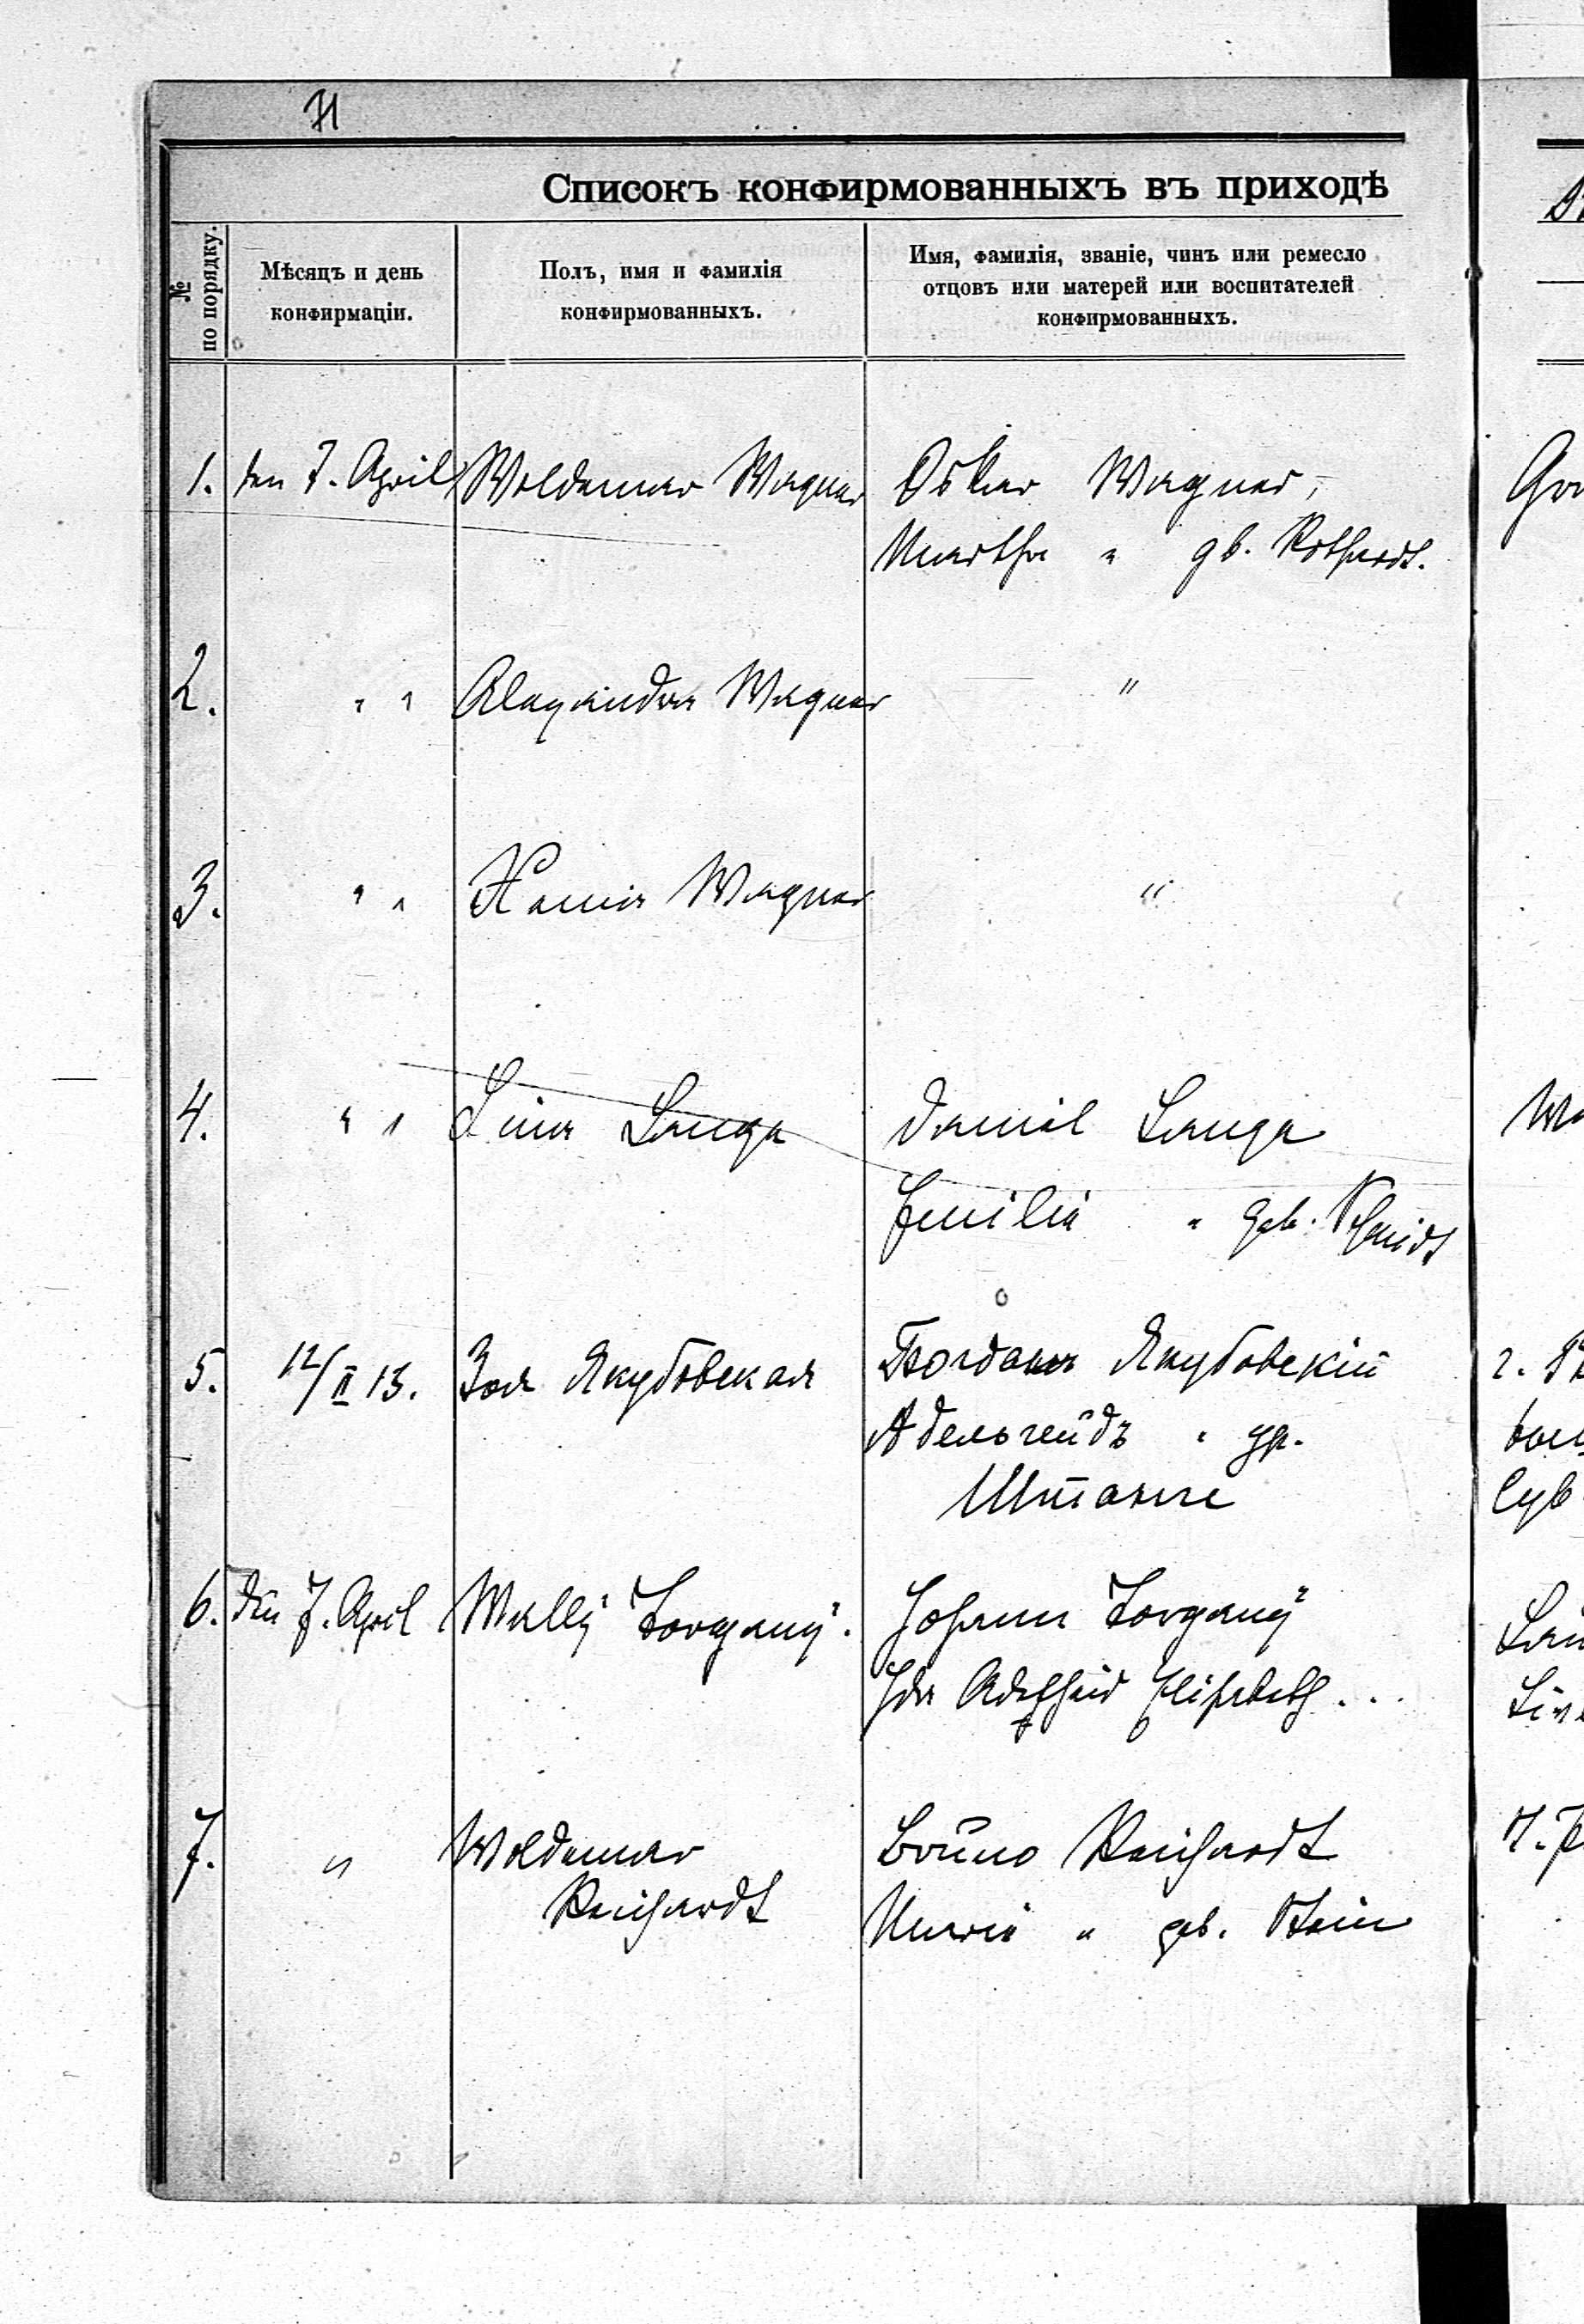 71
Списокъ конфирмованныхъ въ приходѣ
№ по порядку.
Мѣсяцъ и день
конфирмаціи.
Полъ, имя и фамилія
конфирмованныхъ.
Имя, фамилія, званіе, чинъ или ремесло
отцовъ или матерей или воспитателей
конфирмованныхъ.
1. den 7. April Woldemar Wagner Oskar Wagner,
Martha " gb. Rothardt.
2. " " Alexandra Wagner "
3. " " Xenia Wagner "
4. " " Lina Lange Daniel Lange
Emilie " geb. Schmidt
5. 12/II 13. Зоя Якубовская Богданъ Якубовскій
Адельгейдъ " ур.
Штанге
6. den 7. April Wally Torgany. Johann Torgany
Ida Adelheid Elisabeth ...
7. " Woldemar Bruno Reichardt
Reichardt
Marie " geb. Stein